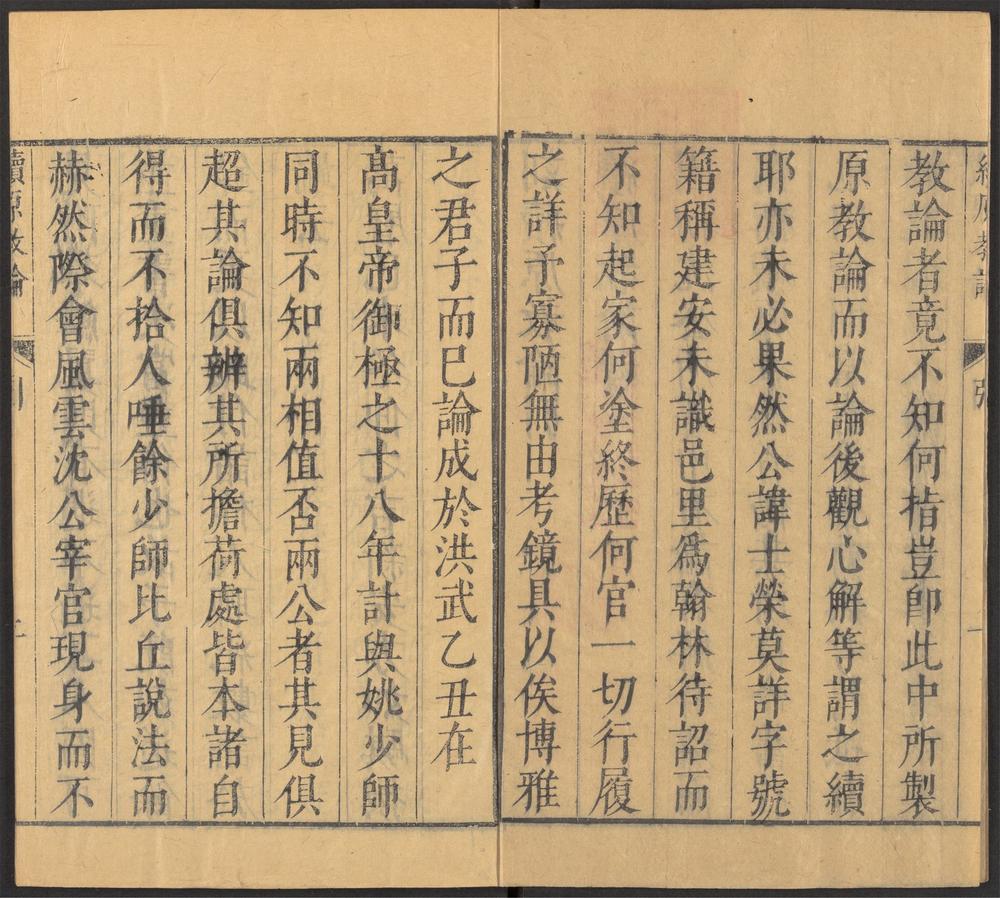 教論者竟不知何指豈卽此中所製
原教論而以論後觀心解等謂之續
耶亦未必果然公諱士榮莫詳字號
籍稱建安未識邑里爲翰林待詔而
不知起家何塗終歷何官一切行履
之詳予寡陋無由考鏡具以俟博雅
之君子而已論成於洪武乙丑在
高皇帝御極之十八年計與姚少師
同時不知兩相值否兩公者其見俱
超其論俱辨其所擔荷處皆本諸自
得而不拾人唾餘少師比丘說法而
赫然際會風雲沈公宰官現身而不
續原教論